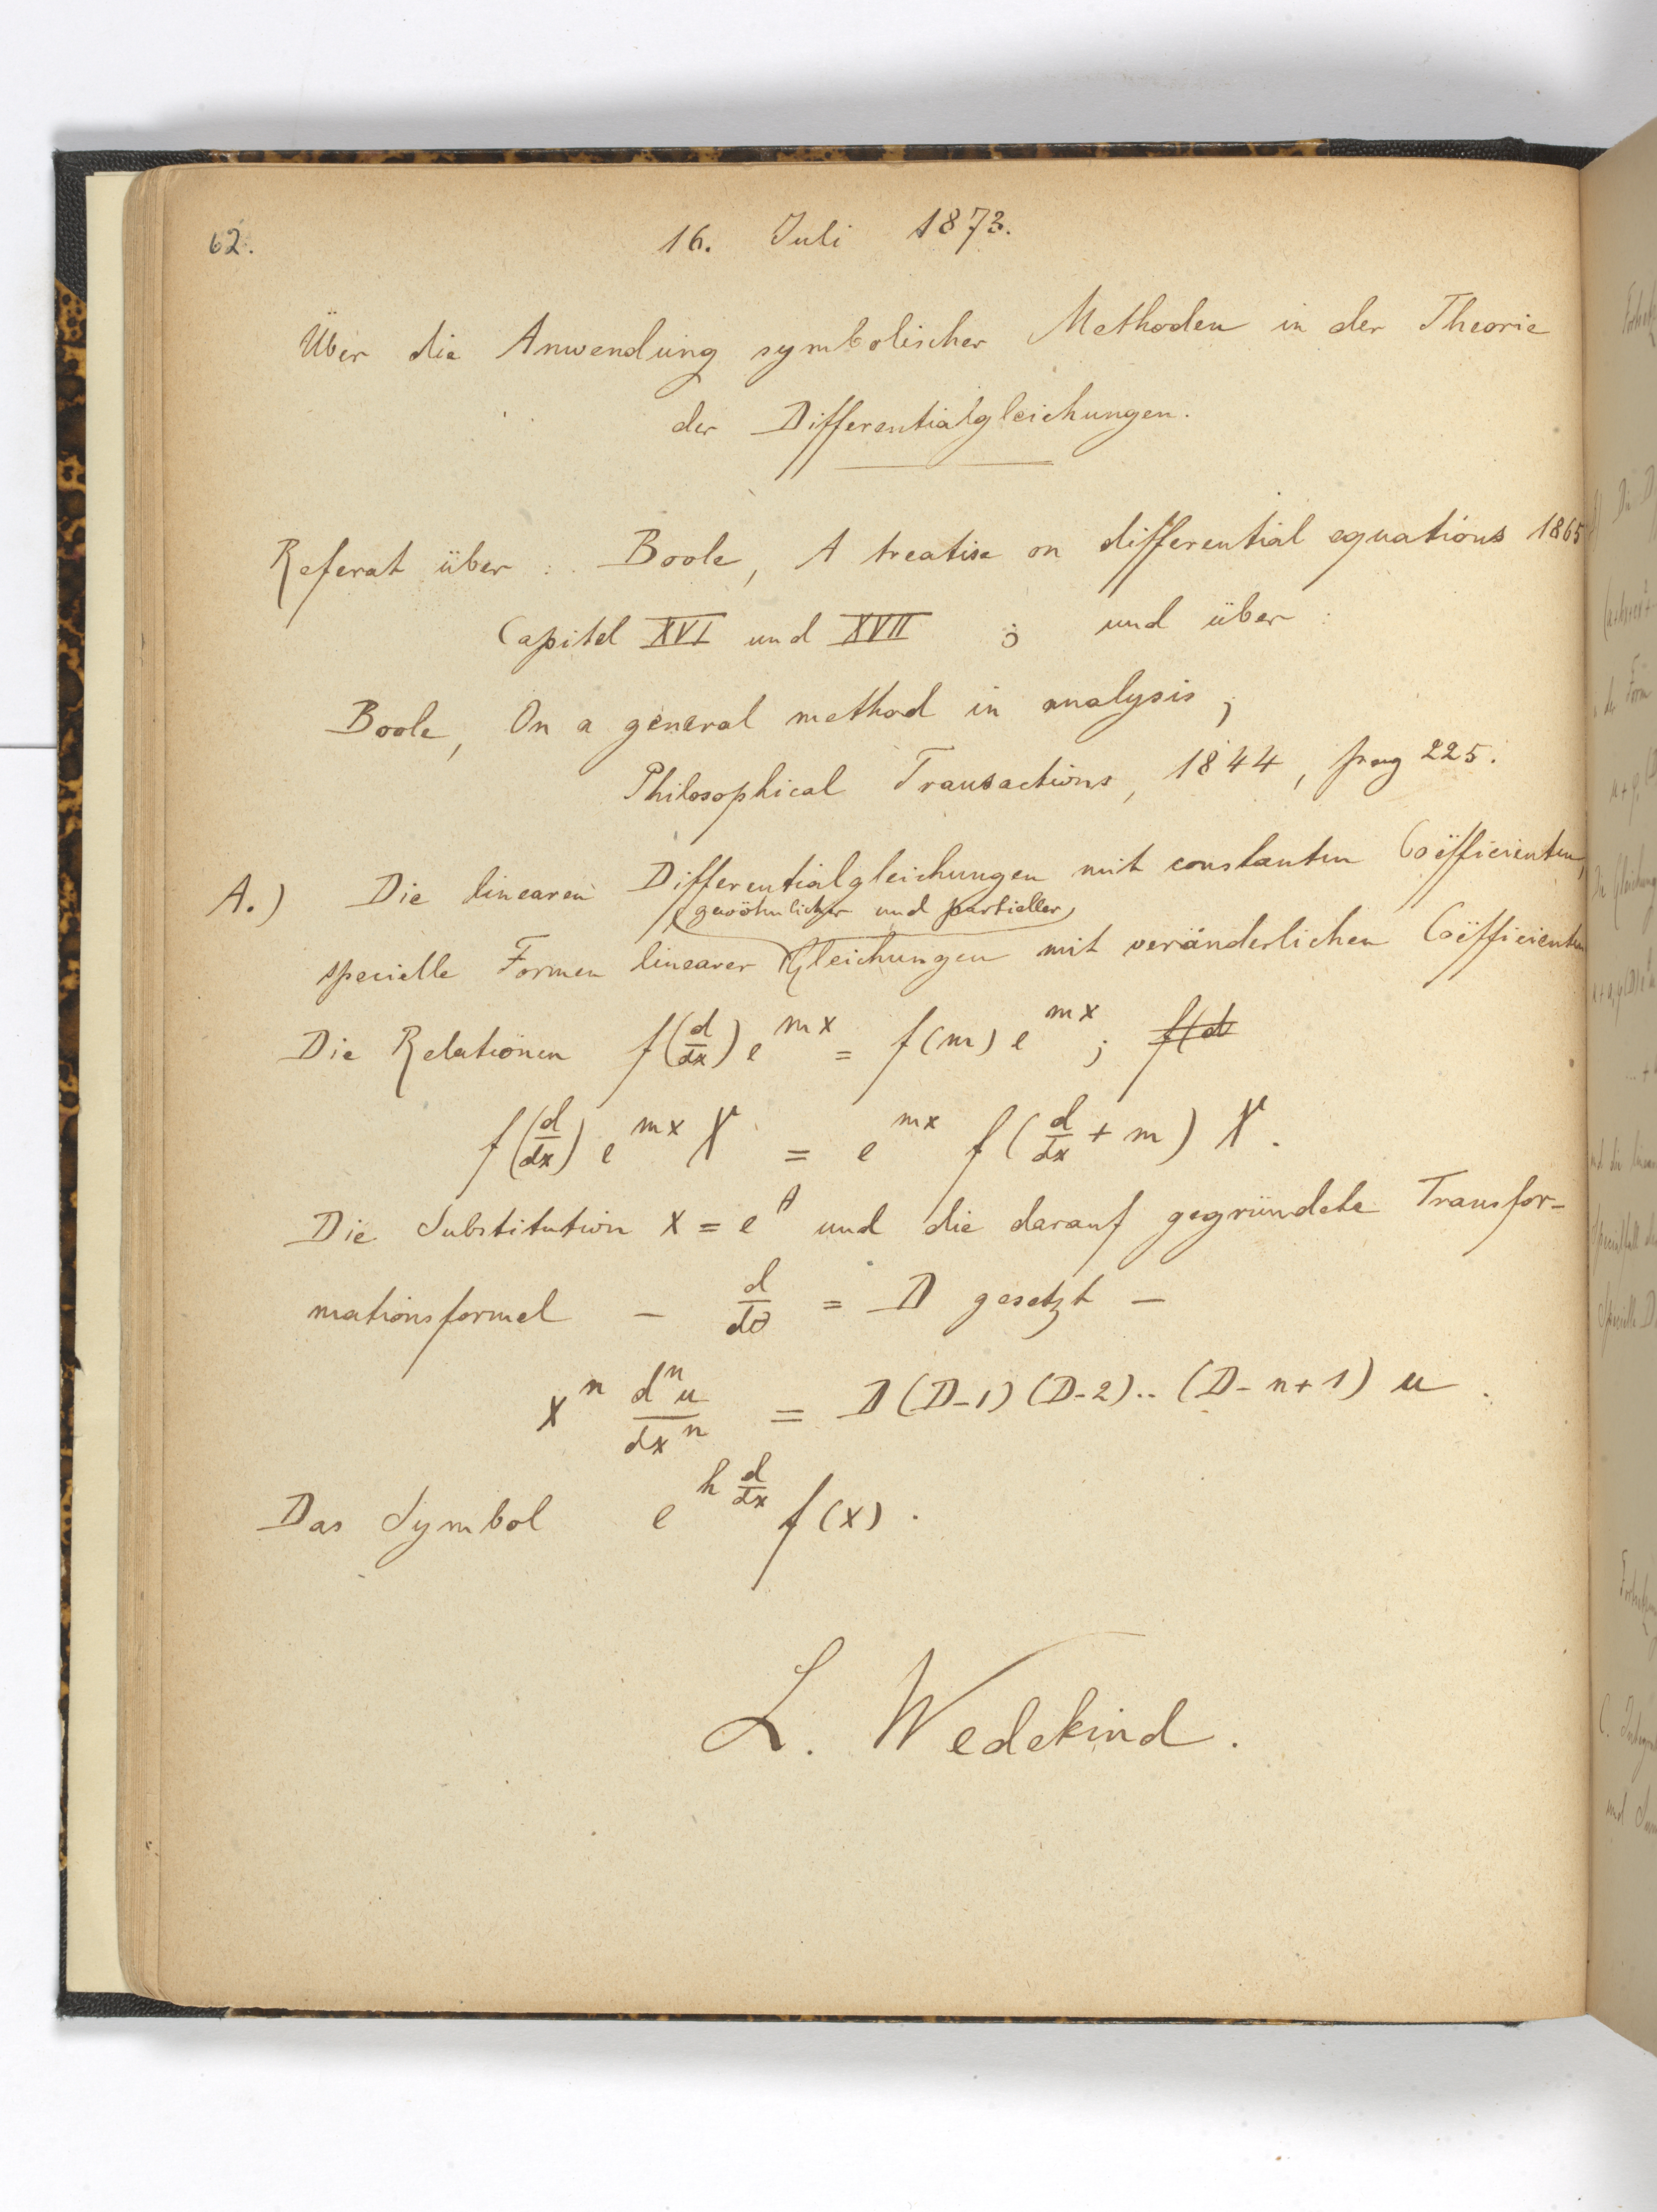 62.
16. Juli 1873.
Über die Anwendung symbolischer Methoden in der Theorie
der Differentialgleichungen.
Referat über : Boole, A treatise on differential equations 1865
Capitel XVI und XVII ; und über :
Boole, On a general method in analysis ;
Philosophical Transactions, 1844, pag 225.
A.) Die linearen Differentialgleichungen mit constanten Coëfficienten,
(gewöhnlicher und partieller)
specielle Formen linearer Gleichungen mit veränderlichen Coëfficienten
Die Relationen f(d/dx) e^{mx} = f(m) e^{mx} ; f(d
f(d/dx) e^{mx} X = e^{mx} f(d/dx + m) X.
Die Substitution x = e^θ und die darauf gegründete Transfor-
mationsformel – d/dθ = D gesetzt –
x^n d^n u/dx^n = D(D-1)(D-2)..(D-n+1) u .
Das Symbol e^{h d/dx} f(x) .
L. Wedekind.